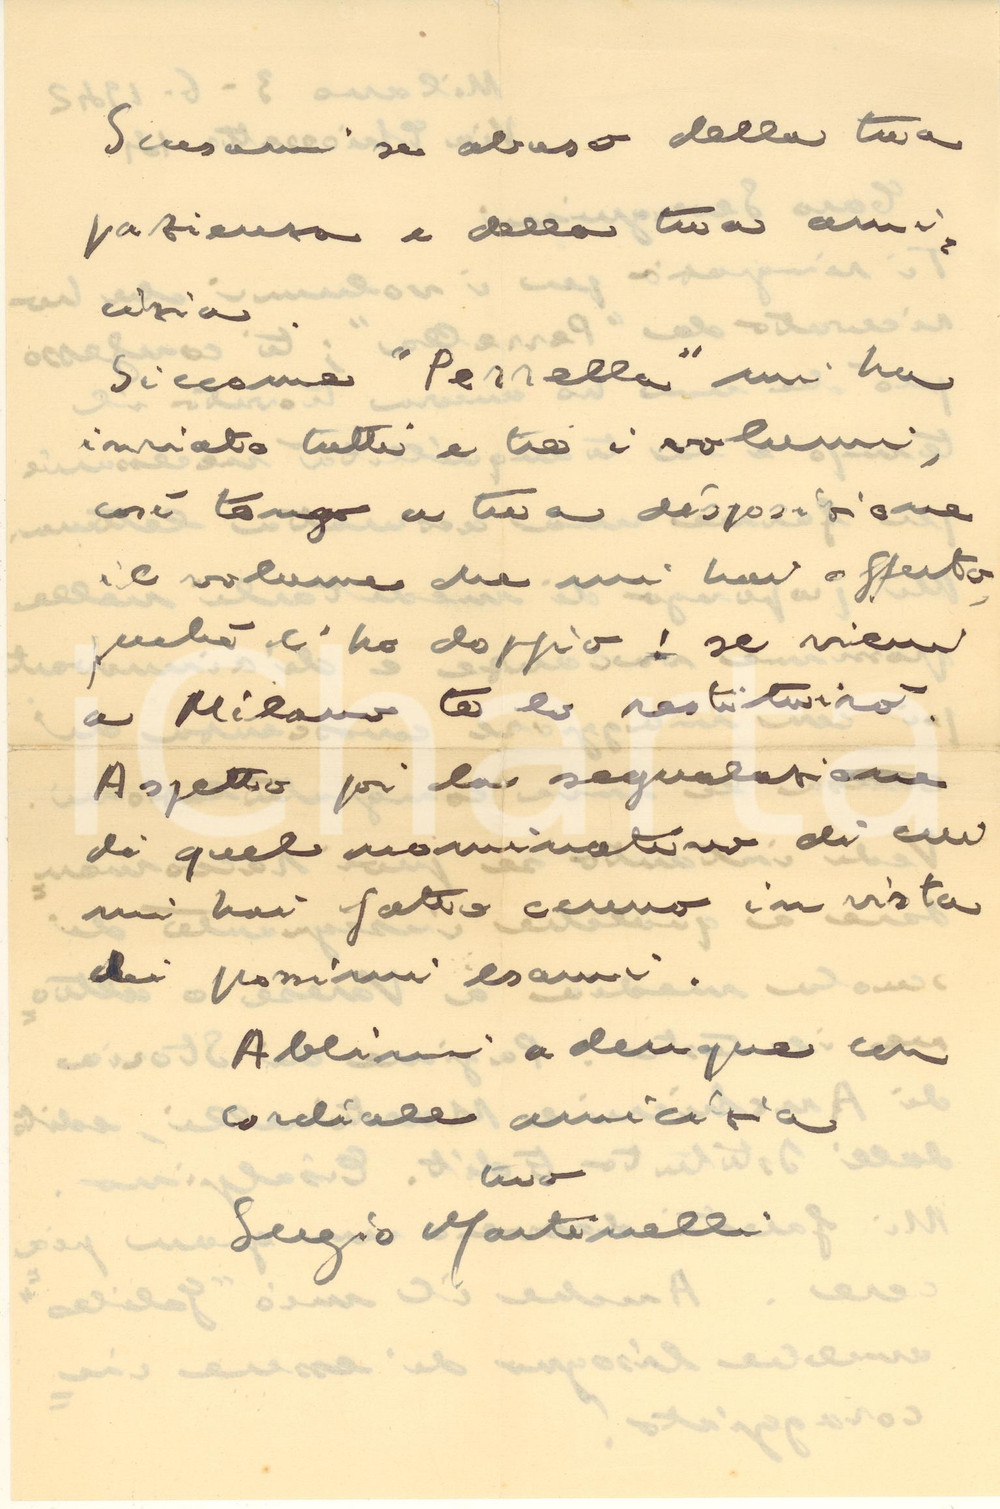 Scusami se abuso della tua
pazienza e della tua ami=
cizia.
Siccome "Perrella" mi ha
inviato tutti e tre i volumi,
così tengo a tua disposizione
il volume che mi hai offerto,
perchè l'ho doppio! se vieni
a Milano te lo restituirò.
Aspetto poi la segnalazione
di quel nominativo di cui
mi hai fatto cenno in vista
dei possimi esami.
Abbimi adunque con
cordiale amicizia
tuo
Sergio Martinelli
iCharta